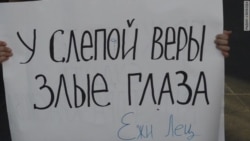 У СЛЕПОЙ ВЕРЫ
ЗЛЫЕ ГЛАЗА
Ежи Лец